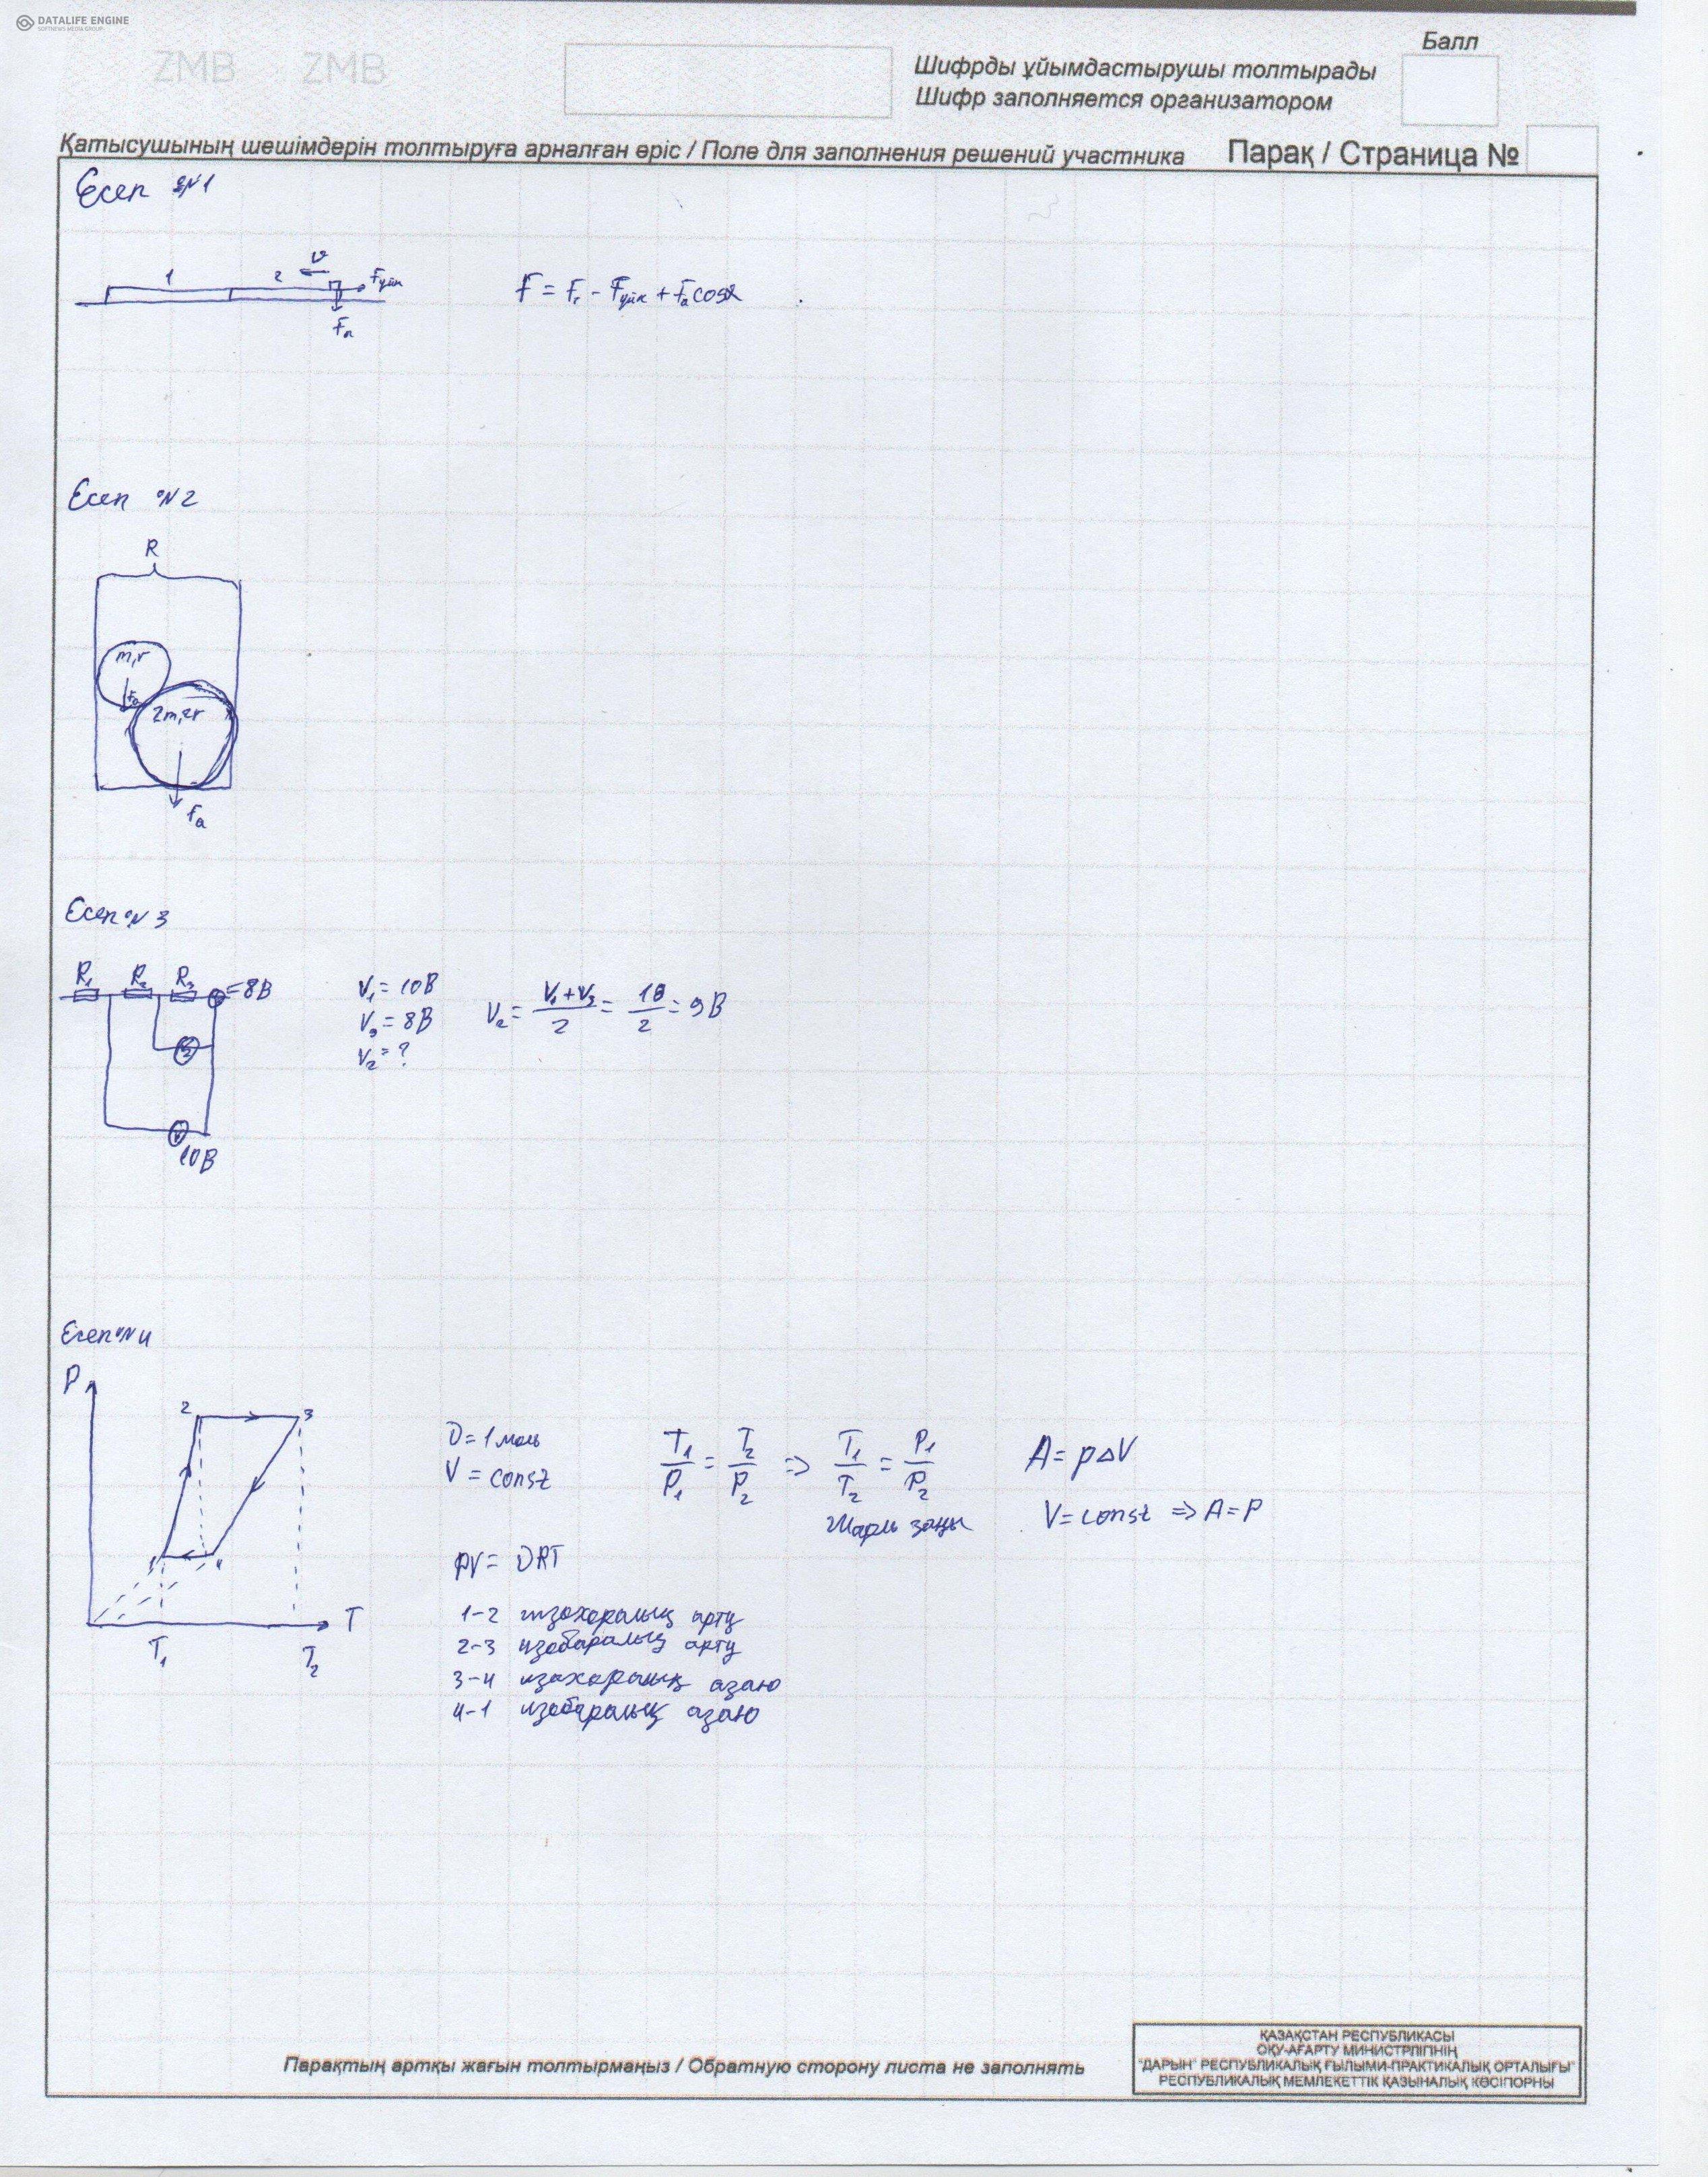 DATALIFE ENGINE
SOFTNEWS MEDIA GROUP
ZMB ZMB
Балл
Шифрды ұйымдастырушы толтырады
Шифр заполняется организатором
Қатысушының шешімдерін толтыруға арналған өріс / Поле для заполнения решений участника
Парақ / Страница №
Есеп №1
1 2 v Fүйк
Fa
F = Fт - Fүйк + Fa cosα
Есеп №2
R
m,r
Fa
2m,2r
Fa
Есеп №3
R1 R2 R3 =8В
10В
V1 = 10В
V3 = 8В
V2 = ?
V2 = (V1+V3)/2 = 18/2 = 9В
Есеп №4
P
2 3
1 4
T
T1 T2
υ = 1 моль
V = const
T1/P1 = T2/P2 => T1/T2 = P1/P2
Шарль заңы
A = pΔV
V = const => A = P
pV = υRT
1-2 изохоралық арту
2-3 изобаралық арту
3-4 изахоралық азаю
4-1 изобаралық азаю
Парақтың артқы жағын толтырмаңыз / Обратную сторону листа не заполнять
ҚАЗАҚСТАН РЕСПУБЛИКАСЫ
ОҚУ-АҒАРТУ МИНИСТРЛІГІНІҢ
"ДАРЫН" РЕСПУБЛИКАЛЫҚ ҒЫЛЫМИ-ПРАКТИКАЛЫҚ ОРТАЛЫҒЫ"
РЕСПУБЛИКАЛЫҚ МЕМЛЕКЕТТІК ҚАЗЫНАЛЫҚ КӘСІПОРНЫ